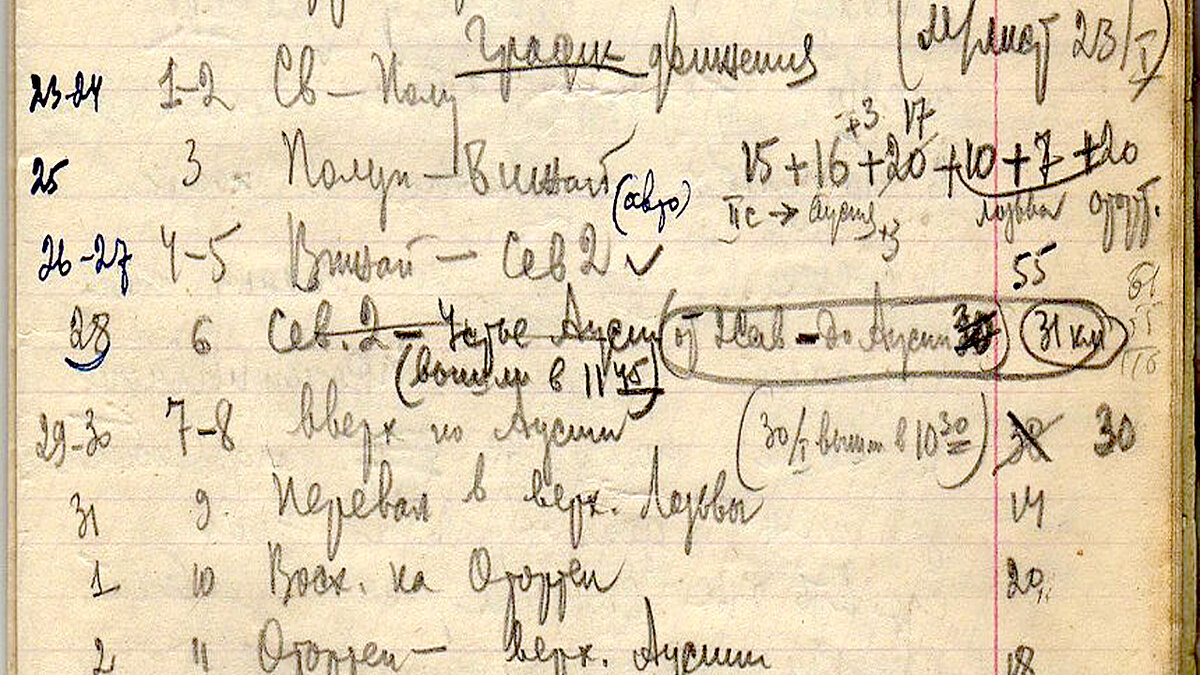 График движения (Мрмист 23/I)
23-24 1-2 Св – Полу
+3 17
25 3 Полун – Вижай (авто) 15 + 16 + 20 + 10 + 7 + 20
IIс → Ауспия +3 лозьва оторт.
26-27 4-5 Вижай – Сев 2 ✓ 55
61
28 6 Сев. 2 – Устье Ауспии (от 2 Сев – до Ауспии 30) (31 км) 55
(вышли в 11 45) 116
29-30 7-8 Вверх по Ауспии (30/I вышли в 10 30) 30 30
31 9 Перевал в верх. Лозьвы 14
1 10 Восх. на Отортен 20
2 11 Отортен – верх. Ауспии 18